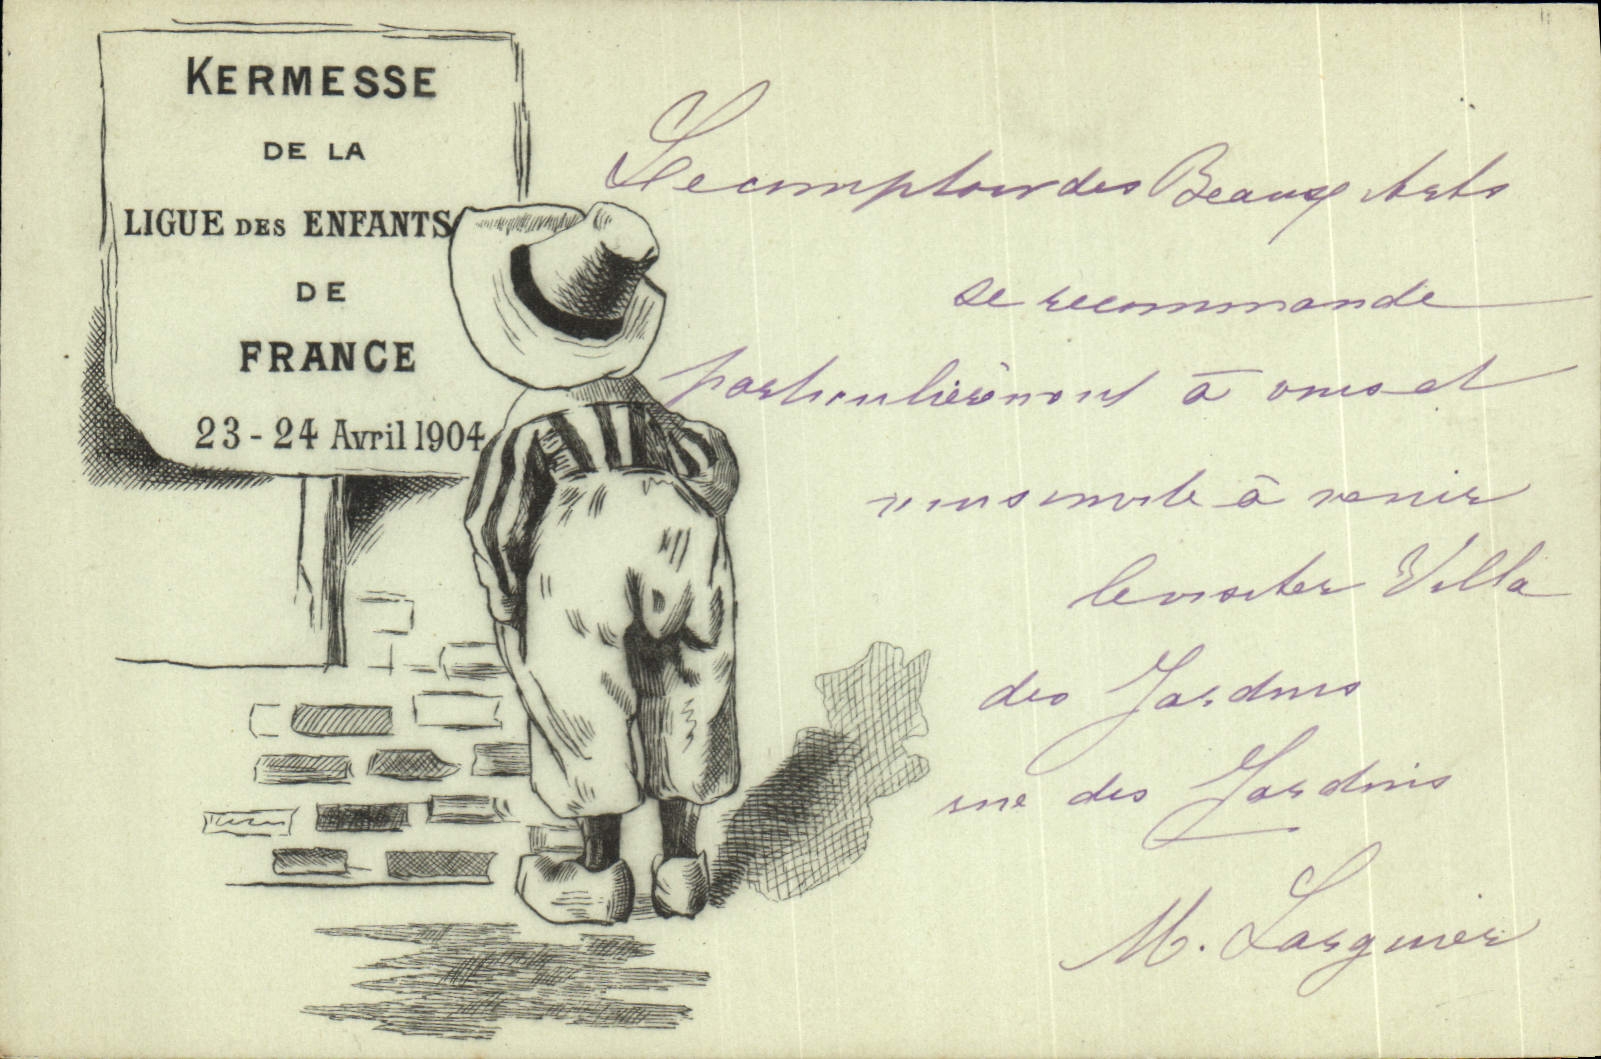 KERMESSE
DE LA
LIGUE DES ENFANTS
DE
FRANCE
23-24 Avril 1904
Le comptoir des Beaux Arts
se recommande
particulièrement à vous et
vous invite à venir
le visiter Villa
des Jardins
rue des Jardins
M. Larguier